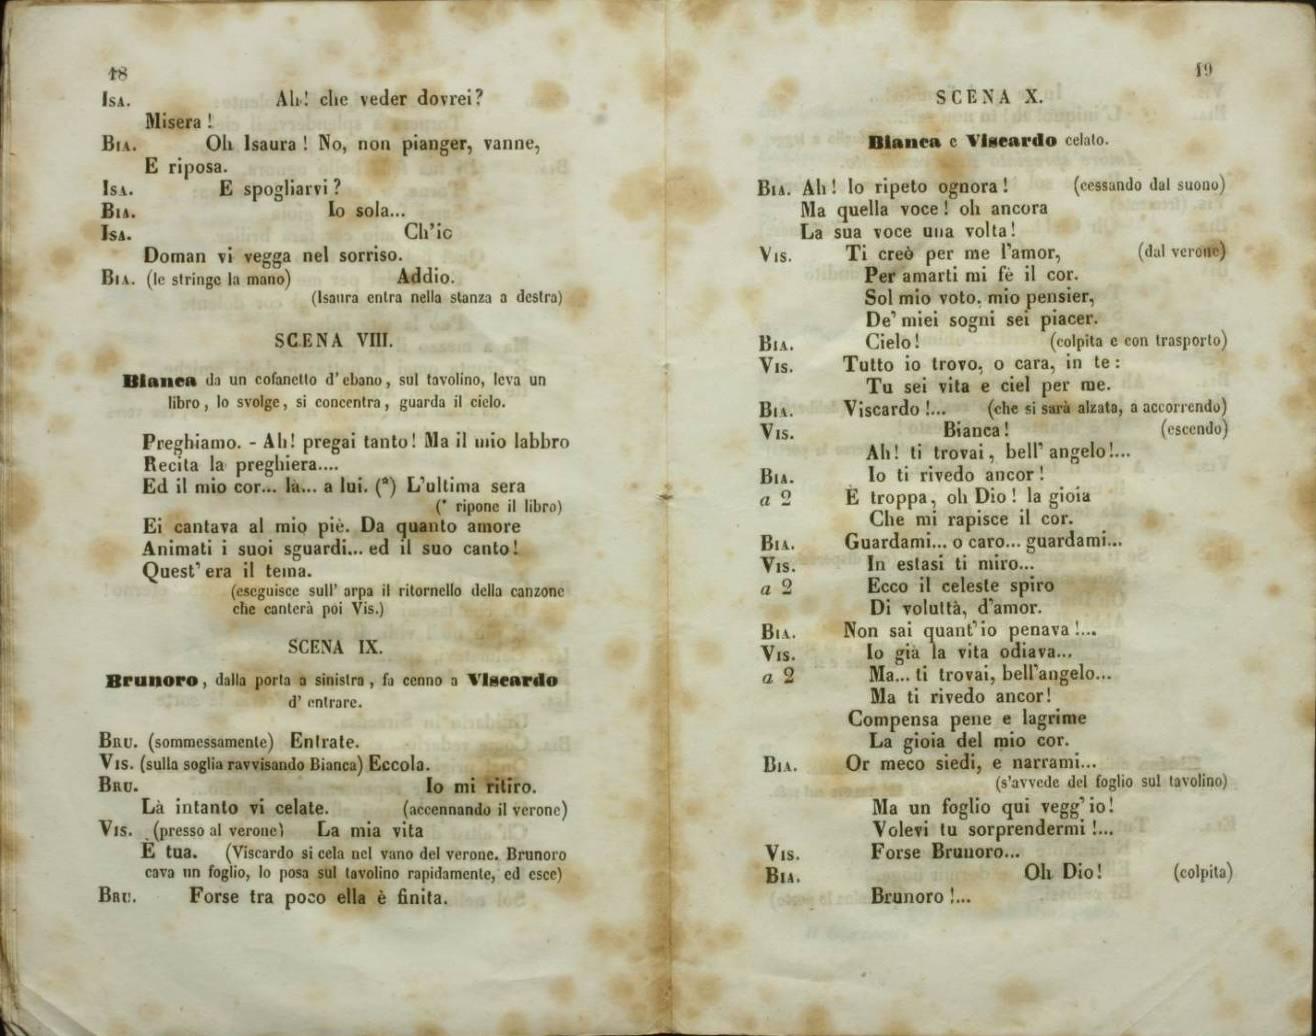 18
ISA. Ah! che veder dovrei?
Misera!
BIA. Oh Isaura! No, non pianger, vanne,
E riposa.
ISA. E spogliarvi?
BIA. Io sola...
ISA. Ch'io
Doman vi vegga nel sorriso.
BIA. (le stringe la mano) Addio.
(Isaura entra nella stanza a destra)
SCENA VIII.
Bianca da un cofanetto d'ebano, sul tavolino, leva un
libro, lo svolge, si concentra, guarda il cielo.
Preghiamo. - Ah! pregai tanto! Ma il mio labbro
Recita la preghiera....
Ed il mio cor... là... a lui. (*) L'ultima sera
(* ripone il libro)
Ei cantava al mio piè. Da quanto amore
Animati i suoi sguardi... ed il suo canto!
Quest'era il tema.
(eseguisce sull'arpa il ritornello della canzone
che canterà poi Vis.)
SCENA IX.
Brunoro, dalla porta a sinistra, fa cenno a Viscardo
d'entrare.
BRU. (sommessamente) Entrate.
VIS. (sulla soglia ravvisando Bianca) Eccola.
BRU. Io mi ritiro.
Là intanto vi celate. (accennando il verone)
VIS. (presso al verone) La mia vita
È tua. (Viscardo si cela nel vano del verone. Brunoro
cava un foglio, lo posa sul tavolino rapidamente, ed esce)
BRU. Forse tra poco ella è finita.
19
SCENA X.
Bianca e Viscardo celato.
BIA. Ah! lo ripeto ognora! (cessando dal suono)
Ma quella voce! oh ancora
La sua voce una volta!
VIS. Ti creò per me l'amor, (dal verone)
Per amarti mi fè il cor.
Sol mio voto, mio pensier,
De' miei sogni sei piacer.
BIA. Cielo! (colpita e con trasporto)
VIS. Tutto io trovo, o cara, in te:
Tu sei vita e ciel per me.
BIA. Viscardo!... (che si sarà alzata, a accorrendo)
VIS. Bianca! (escendo)
Ah! ti trovai, bell'angelo!...
BIA. Io ti rivedo ancor!
a 2 È troppa, oh Dio! la gioia
Che mi rapisce il cor.
BIA. Guardami... o caro... guardami...
VIS. In estasi ti miro...
a 2 Ecco il celeste spiro
Di voluttà, d'amor.
BIA. Non sai quant'io penava!...
VIS. Io già la vita odiava...
a 2 Ma... ti trovai, bell'angelo...
Ma ti rivedo ancor!
Compensa pene e lagrime
La gioia del mio cor.
BIA. Or meco siedi, e narrami...
(s'avvede del foglio sul tavolino)
Ma un foglio qui vegg'io!
Volevi tu sorprendermi!...
VIS. Forse Brunoro...
BIA. Oh Dio! (colpita)
Brunoro!...